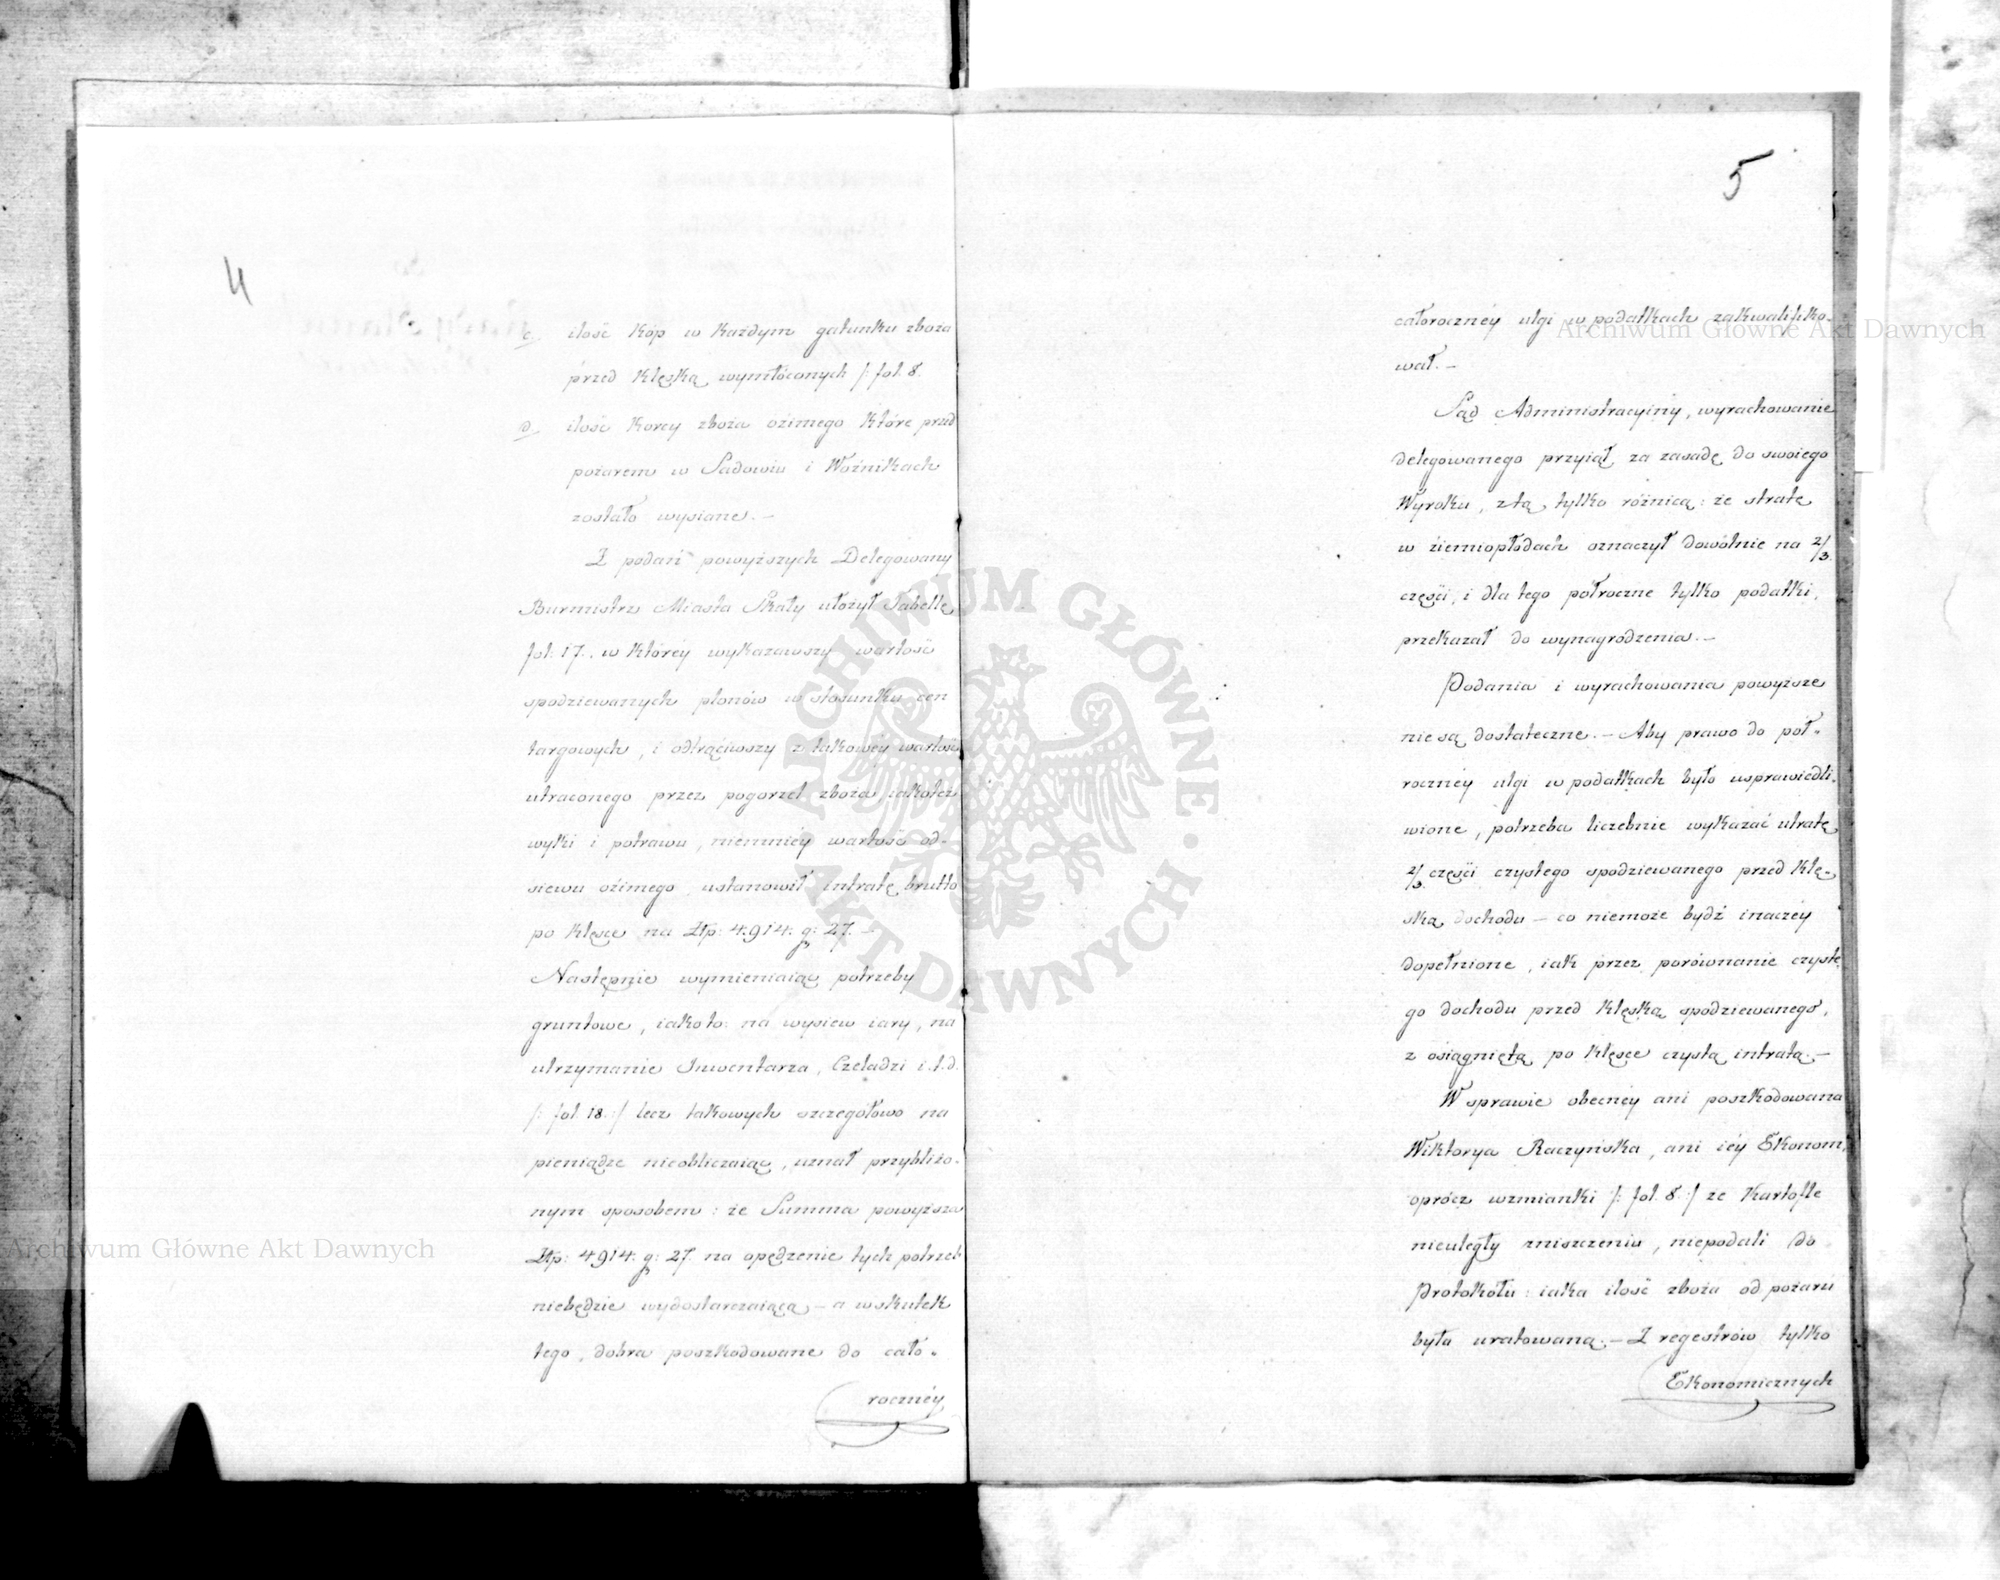 4
c. ilość kóp w każdym gatunku zboża
przed klęską wymłóconych /: fol. 8.
d. ilość korcy zboża ozimego które przed
pożarem w Sadowiu i Woźnikach
zostało wysiane. –
Z podań powyższych Delegowany
Burmistrz Miasta Skały ułożył Tabellę
fol: 17. w któréy wykazawszy wartość
spodziewanych plonów w stosunku cen
targowych, i odtrąciwszy z takowéy wartość
utraconego przez pogorzel zboża, iakotéz
wyki i potrawu, niemniéy wartość od-
siewu ozimego, ustanowił intratę brutto
po klęsce na Złp: 4.914. g: 27. –
Następnie wymieniaiąc potrzeby
gruntowe, iakoto: na wysiew iary, na
utrzymanie Inwentarza, Czeladzi i.t.d.
/: fol. 18. :/ lecz takowych szczegółowo na
pieniądze nieobliczaiąc, uznał przybliżo-
nym sposobem: że Summa powyższa
Złp: 4914. g: 27. na opędzenie tych potrzeb
niebędzie wydostarczaiącą – a wskutek
tego, dobra poszkodowane do cało-
rocznéy
5
całorocznéy ulgi w podatkach zakwalifiko-
wał. –
Sąd Administracyiny, wyrachowanie
delegowanego przyiął za zasadę do swoiego
Wyroku, z tą tylko różnicą: że stratę
w ziemiopłodach oznaczył dowólnie na 2/3.
części, i dla tego półroczne tylko podatki,
przekazał do wynagrodzenia. –
Podania i wyrachowania powyższe
nie są dostateczne. – Aby prawo do pół-
rocznéy ulgi w podatkach było usprawiedli-
wione, potrzeba liczebnie wykazać utratę
2/3. części czystego spodziewanego przed klę-
ską dochodu – co niemoże bydź inaczéy
dopełnione, iak przez porównanie czyste-
go dochodu przed klęską spodziewanego,
z osiągniętą po klęsce czystą intratą. –
W sprawie obecnéy ani poszkodowana
Wiktorya Raczyńska, ani iéy Ekonom,
oprócz wzmianki /: fol. 8. :/ że kartofle
nieuległy zniszczeniu, niepodali do
Protokółu: iaka ilość zboża od pożaru
była uratowaną. – Z regestrów tylko
Ekonomicznych
Archiwum Główne Akt Dawnych
Archiwum Główne Akt Dawnych
ARCHIWUM GŁÓWNE · AKT DAWNYCH ·